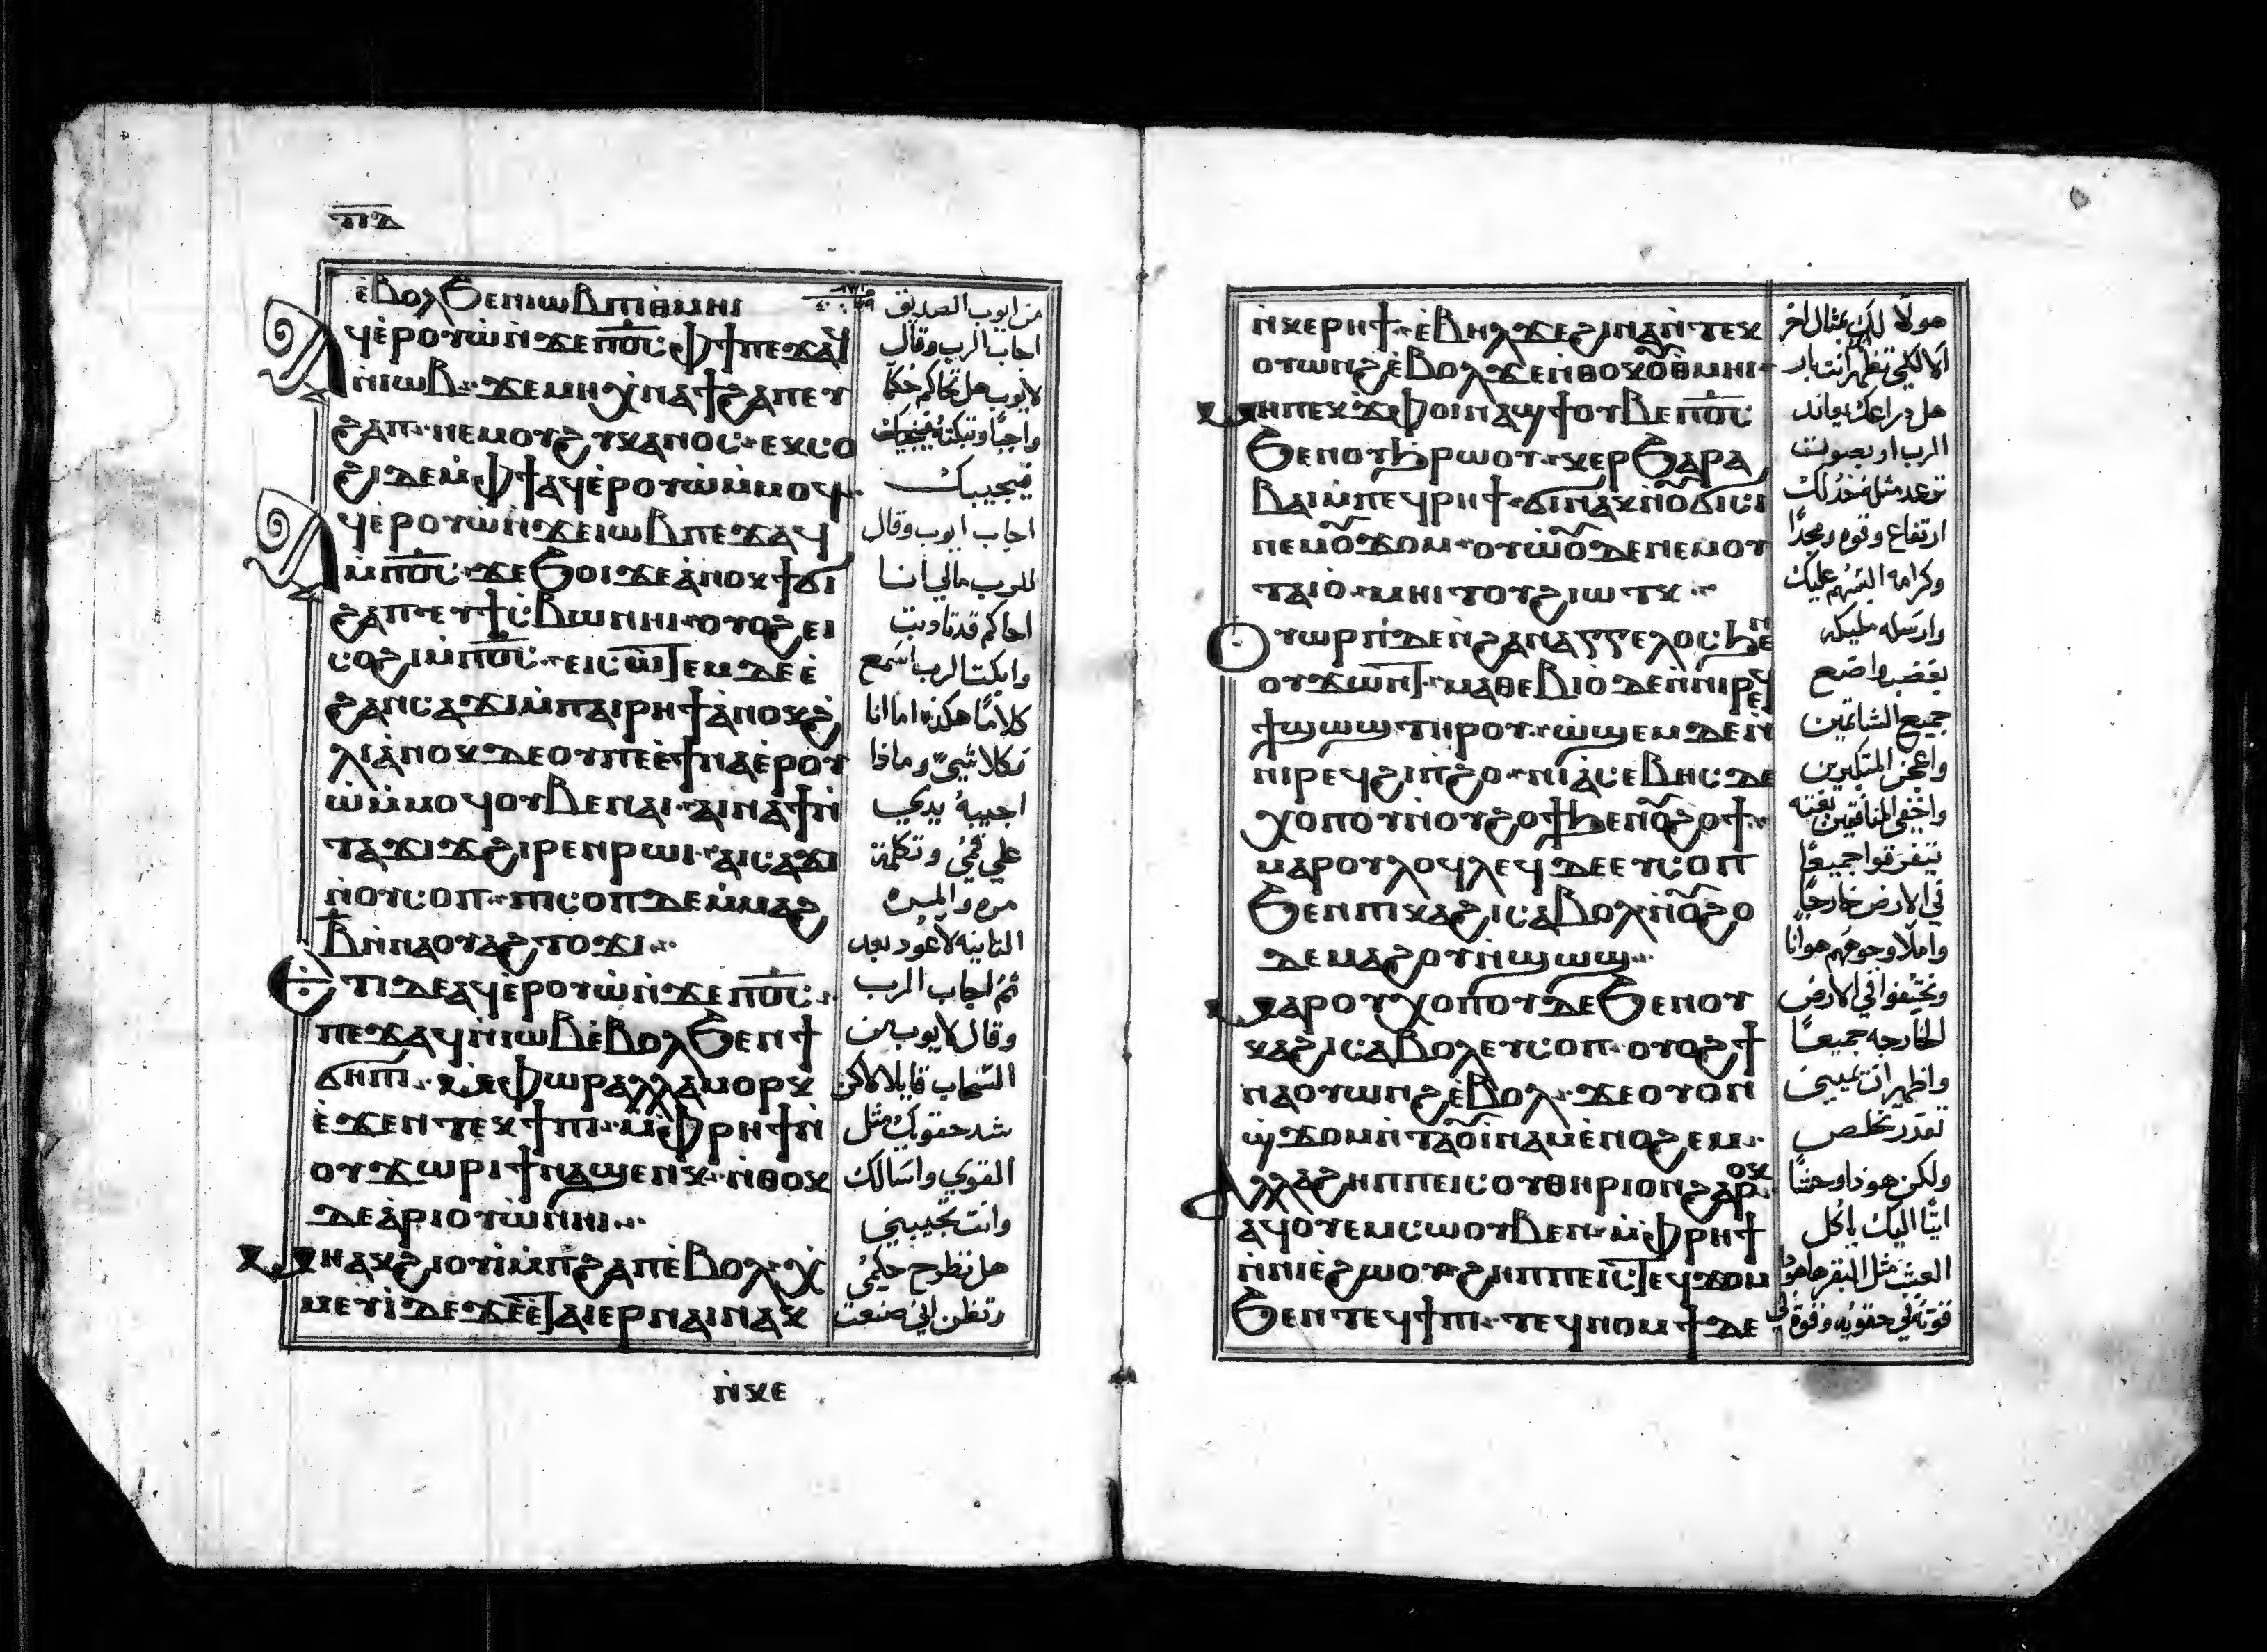 ⲡⲇ
ⲉ̀ⲃⲟⲗϧⲉⲛⲓⲱⲃⲡⲓⲑⲙⲏⲓ
ⲁϥⲉ̀ⲣⲟⲩⲱ̀ⲛ̀ϫⲉⲡⲟ̅ⲥ̅ ⲫϯⲡⲉϫⲁϥ
ⲛ̀ⲓⲱⲃ· ϫⲉⲙⲏⲭⲛⲁϯϩⲁⲡⲉⲩ
ϩⲁⲡ· ⲛⲉⲙⲟⲩϩⲩⲕⲁⲛⲟⲥ· ⲉⲕⲥⲟ
ϩⲓⲇⲉⲙ̀ⲫϯⲁϥⲉ̀ⲣⲟⲩⲱ̀ⲙ̀ⲙⲟϥ·
ⲁϥⲉ̀ⲣⲟⲩⲱ̀ⲛ̀ϫⲉⲓⲱⲃⲡⲉϫⲁϥ
ⲙ̀ⲡⲟ̅ⲥ̅· ϫⲉϧⲟⲓϫⲉⲁ̀ⲛⲟⲕϯϭⲓ
ϩⲁⲡ· ⲉⲩϯⲥ̀ⲃⲱⲛⲏⲓ· ⲟⲩⲟϩⲉⲓ
ⲥⲟϩⲓⲙ̀ⲡⲟ̅ⲥ̅· ⲉⲓⲥⲱⲧⲉⲙⲇⲉⲉ̀
ϩⲁⲛⲥⲁϫⲓⲙ̀ⲡⲁⲓⲣⲏϯⲁ̀ⲛⲟⲕϩ
ⲗⲓⲁ̀ⲛⲟⲕⲇⲉⲟⲩⲡⲉⲉ̀ϯⲛⲁⲉ̀ⲣⲟⲩ
ⲱ̀ⲙ̀ⲙⲟϥⲟⲩⲃⲉⲛⲁⲓ· ⲁⲓⲛⲁϯⲛ̀
ⲧⲁϫⲓϫϩⲓⲣⲉⲛⲣⲱⲓ· ⲁⲓⲥⲁϫⲓ
ⲛ̀ⲟⲩⲥⲟⲡ· ⲡⲓⲥⲟⲡⲇⲉⲙ̀ⲙⲁϩ
ⲃ̅ⲛ̀ⲛⲁⲟⲩⲁϩⲧⲟϫⲓ·
ⲉⲧⲓⲇⲉⲁϥⲉ̀ⲣⲟⲩⲱ̀ⲛ̀ϫⲉⲡⲟ̅ⲥ̅·
ⲡⲉϫⲁϥⲛ̀ⲓⲱⲃⲉ̀ⲃⲟⲗϧⲉⲛϯ
ϭⲏⲡⲓ· ⲙ̀ⲫⲱⲣⲁⲗⲗⲁⲙⲟⲣⲕ
ⲉ̀ϫⲉⲛⲧⲉⲕϯⲡⲓ· ⲙ̀ⲫⲣⲏϯⲛ̀
ⲟⲩϫⲱⲣⲓϯⲛⲁϣⲉⲛⲕ· ⲛ̀ⲑⲟⲕ
ⲇⲉⲁ̀ⲣⲓⲟⲩⲱ̀ⲛⲏⲓ·
ⲙⲏⲁⲕϩⲓⲟⲩⲓ̀ⲙ̀ⲡϩⲁⲡⲉ̀ⲃⲟⲗ· ⲭ
ⲙⲉⲩⲓ̀ⲇⲉϫⲉⲉ̀ⲧⲁⲓⲉⲣⲛⲁⲓⲛⲁⲕ
ⲛ̀ⲕⲉ
من ايوب الصديق
اجاب الرب وقال
لايوب هل تحاكم حكما
فيجيبك
اجاب ايوب وقال
للرب مالي انا
احاكم قدتادبت
وابكت الرب اسمع
كلاما هكذا اما انا
فكلا شي وماذا
اجيبه يدي
علي فمي وتكلمت
مره والمره
الثانيه لااعود بعد
ثم اجاب الرب
وقال لايوب من
السحاب قايلا لاكن
شد حقويك مثل
القوي واسالك
وانت تجيبني
هل تطرح حكمي
وتظن اني صنعت
ⲛ̀ⲕⲉⲣⲏϯ· ⲉ̀ⲃⲏⲗϫⲉϩⲓⲛⲁⲛ̀ⲧⲉⲕ
ⲟⲩⲱⲛϩⲉ̀ⲃⲟⲗϫⲉⲛ̀ⲑⲟⲕⲟⲩⲑⲙⲏⲓ·
ⲙⲏⲡⲉⲕϫⲫⲟⲓⲛⲁϣϯⲟⲩⲃⲉⲡⲟ̅ⲥ̅
ϧⲉⲛⲟⲩϧⲣⲱⲟⲩ· ⲭⲉⲣϧⲁⲣⲁ
ⲃⲁⲓⲙ̀ⲡⲉϥⲣⲏϯ· ϭⲓⲛⲁⲕⲛ̀ⲟⲩϭⲓⲥⲓ
ⲛⲉⲙⲟⲩϫⲟⲙ· ⲟⲩⲱ̀ⲟⲩⲇⲉⲛⲉⲙⲟⲩ
ⲧⲁⲓⲟ̀· ⲙⲏⲓⲧⲟⲩϩⲓⲱⲧⲕ·
ⲟⲩⲱⲣⲡ̀ⲇⲉⲛ̀ϩⲁⲛⲁⲅⲅⲉⲗⲟⲥϧⲉⲛ
ⲟⲩϫⲱⲛⲧ· ⲙⲁⲑⲉⲃⲓⲟ̀ⲇⲉⲛ̀ⲛⲓⲣⲉϥ
ϯϣⲱϣⲧⲏⲣⲟⲩ· ⲱ̀ϣⲉⲙⲇⲉⲛ̀
ⲛⲓⲣⲉϥϩⲓⲡ̀ϩⲟ· ⲛⲓⲁ̀ⲥⲉⲃⲏⲥⲇⲉ
ⲭⲟⲡⲟⲩⲛ̀ⲟⲩϩⲟϯϧⲉⲛⲟⲩϩⲟϯ·
ⲙⲁⲣⲟⲩⲗⲟϥⲗⲉϥⲇⲉⲉⲩⲥⲟⲡ
ϧⲉⲛⲡⲓⲕⲁϩⲓⲥⲁⲃⲟⲗ· ⲛⲟⲩϩⲟ
ⲇⲉⲙⲁϩⲟⲩⲛ̀ϣⲱϣ·
ⲙⲁⲣⲟⲩⲭⲟⲡⲟⲩⲇⲉϧⲉⲛⲟⲩ
ⲕⲁϩⲓⲥⲁⲃⲟⲗⲉⲩⲥⲟⲡ· ⲟⲩⲟϩϯ
ⲛⲁⲟⲩⲱⲛϩⲉ̀ⲃⲟⲗ· ϫⲉⲟⲩⲟⲛ
ϣ̀ϫⲟⲙⲛ̀ⲧⲁⲟⲩⲓ̀ⲛⲁⲙⲉ̀ⲛⲟϩⲉⲙ·
ⲁⲗⲗⲁϩⲏⲡⲡⲉⲓⲥⲟⲩⲑⲏⲣⲓⲟⲛϩⲁⲣⲟⲕ·
ⲁϥⲟⲩⲉⲙⲥⲱⲟⲩⲃⲉⲛ· ⲙ̀ⲫⲣⲏϯ
ⲛ̀ⲛⲓⲉ̀ϩⲱⲟⲩ· ϩⲏⲡⲡⲉⲓⲥⲧⲉϥϫⲟⲙ
ϧⲉⲛⲧⲉϥϯⲡⲓ· ⲧⲉϥⲛⲟⲙϯⲇⲉ
هولا لك بمثال اخر
الا لكي تظهر انت بار
هل دراعك يعاند
الرب او بصوت
ترعد مثله خذ لك
ارتفاع وقوه ومجدا
وكرامه البسهم عليك
وارسله مليكه
بغضب واضع
جميع الشاتمين
واعجز المتكبرين
واخفي المنافقين بغته
يتفرقوا جميعا
في الارض خارجا
واملا وجوههم هوانا
ويختفوا في الارض
الخارجه جميعا
واظهر ان يميني
تقدر تخلص
ولكن هوذا وحشا
اتيا اليك ياكل
العشب مثل البقر هاهوذا
قوته في حقويه وقوة في